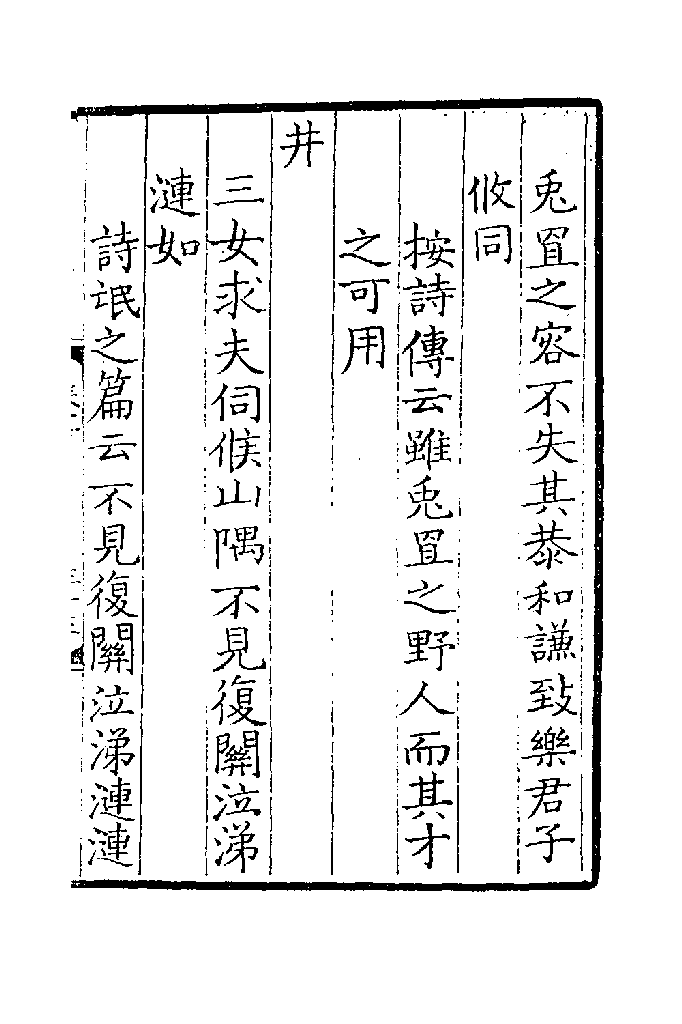 兎罝之容不失其恭和謙致樂君子
攸同
按詩傳云雖兎罝之野人而其才
之可用
井
三女求夫伺候山隅不見復關泣涕
漣如
詩氓之篇云不見復關泣涕漣漣